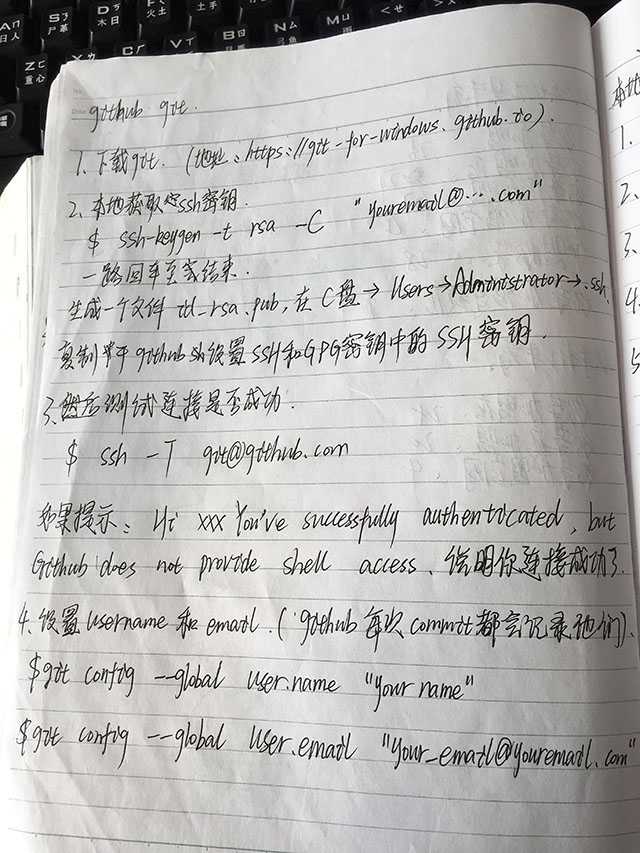 github git.
1. 下载git. (地址:https://git-for-windows.github.io).
2. 本地获取ssh密钥.
$ ssh-keygen -t rsa -C "youremail@....com"
一路回车至结束.
生成一个文件 id_rsa.pub, 在C盘→Users→Administrator→.ssh.
复制 github 设置SSH和GPG密钥中的SSH密钥.
3. 然后测试连接是否成功.
$ ssh -T git@github.com
如果提示: Hi xxx You've successfully authenticated, but
Github does not provide shell access. 说明你连接成功了.
4. 设置username和email. (github每次commit都会记录他们).
$git config --global user.name "your name"
$git config --global user.email "your_email@youremail.com"
本地
1.
2.
3.
4.
5